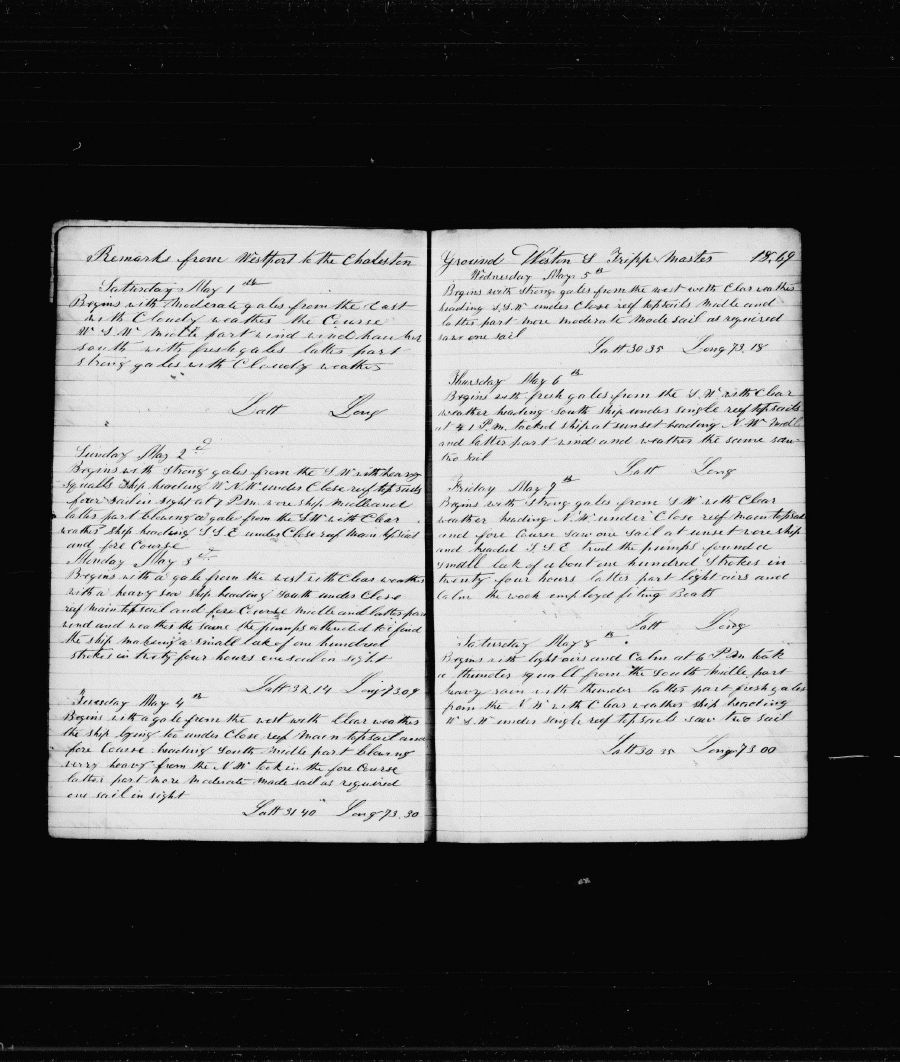 Remarks from Westport to the Chaleston
Saturday May 1th
Begins with Moderate gales from the East
with Cloudy weather the Course
W S W Midle part wind wind
South with fresh gales latter part
strong gales with Cloudy weather
Latt Long
Sunday May 2d
Begins with Strong gales from the S W with heavy
Squalls Ship heading W N W under Close reef top sails
four sail in sight at 7 P m wore ship midle and
latter part blowing a gale from the S W with Clear
weather Ship heading S S E under Close reef main top sail
and fore Course
Monday May 3d
Begins with a gale from the west with Clear weather
with a heavy sea ship heading South under Close
reef main top sail and fore Course midle and latter part
wind and weather the same the pumps attended to i find
the ship making a small lake of one hundred
strokes in twty four hours one sail in sight
Latt 32.14 Long 73.09
Tuesday May 4th
Begins with a gale from the west with Clear weather
the ship lying too under Close reef main top sail and
fore Course heading South midle part blowing
very heavy from the N W took in the fore Course
latter part more Moderate made sail as required
one sail in sight
Latt 31 40 Long 73.30
Ground Weston S Tripp Master 18.69
Wednesday May 5th
Begins with Strong gales from the west with Clear weather
heading S.S.W under Close reef topsails midle and
latter part more moderate made sail as required
saw one sail
Latt 30 35 Long 73.18
Thursday May 6th
Begins with fresh gales from the S.W with Clear
weather heading South ship under single reef topsails
at 4 P.m. tacked ship at sunset heading N W midle
and latter part wind and weather the same saw
two sail
Latt Long
Friday May 7th
Begins with Strong gales from S W with Clear
weather heading N.W under Close reef main topsail
and fore Course saw one sail at sunset wore ship
and headed S.S.E tried the pumps found a
small lake of about one hundred strokes in
twenty four hours latter part light airs and
Calm the wach employd fiting Boats
Latt Long
Saturday May 8th
Begins with light airs and Calm at 6 P m took
a thunder squall from the South midle part
heavy rain with thunder latter part fresh gales
from the N W with Clear weather ship heading
W S W under single reef topsails saw two sail
Latt 30 35 Long 73 00